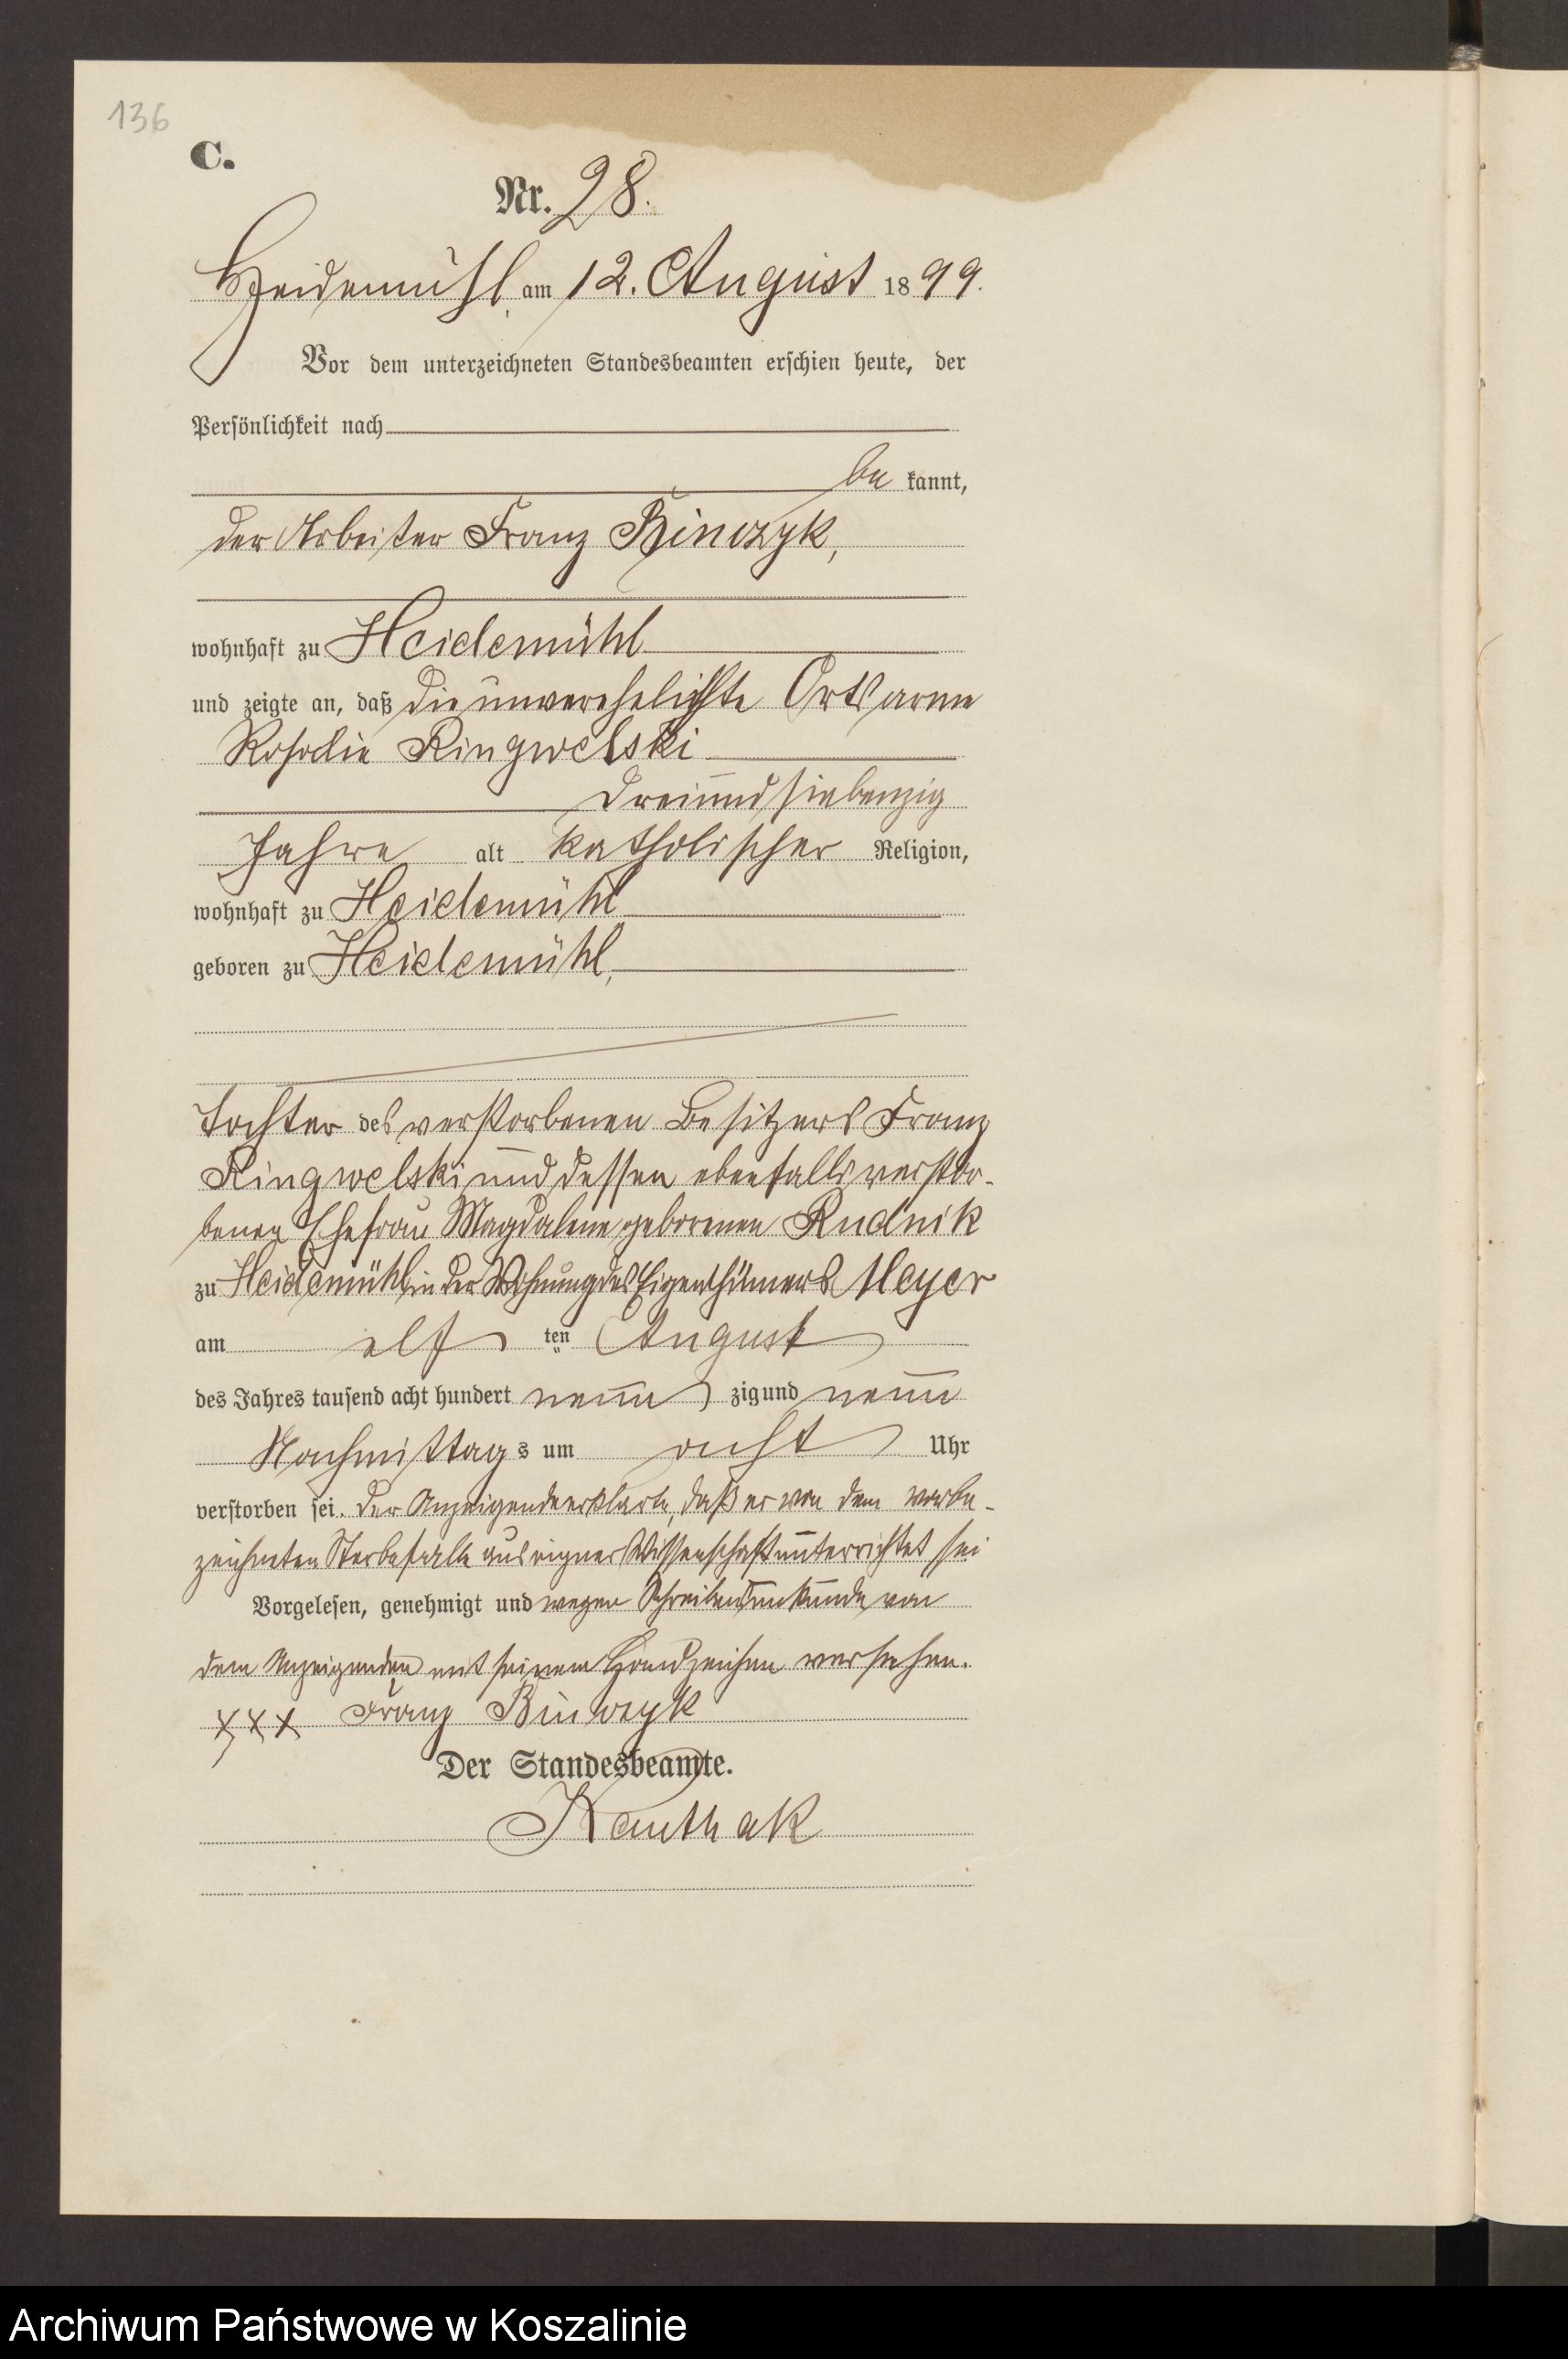 136
C.
Nr. 28.
Heidemühl, am 12. August 1899.
Vor dem unterzeichneten Standesbeamten erschien heute, der
Persönlichkeit nach
be kannt,
der Arbeiter Franz Binczyk,
wohnhaft zu Heidemühl
und zeigte an, daß die unverehelichte Ortsarme
Rosalie Ringwelski
dreiundsiebenzig
Jahre alt katholischer Religion,
wohnhaft zu Heidemühl
geboren zu Heidemühl,
Tochter des verstorbenen Besitzers Franz
Ringwelski und dessen ebenfalls verstor-
benen Ehefrau Magdalene geborenen Rudnik
zu Heidemühl in der Wohnung des Eigenthümers Meyer
am elf ten August
des Jahres tausend acht hundert neun zig und neun
Nachmittags um acht Uhr
verstorben sei. Der Anzeigende erklärte, daß er von dem vorbe-
zeichneten Sterbefalle aus eigner Wissenschaft unterrichtet sei
Vorgelesen, genehmigt und wegen Schreibensunkunde von
dem Anzeigenden mit seinem Handzeichen versehen.
xxx Franz Binczyk
Der Standesbeamte.
Kauthak
Archiwum Państwowe w Koszalinie